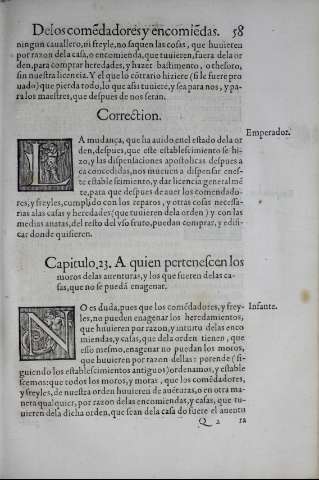 De los comẽdadores y encomiẽdas. 58
ningun cauallero, ni freyle, no saquen las cosas, que huuieren
por razon dela casa, o encomienda, que tuuieren, fuera dela or
den, para comprar heredades, y hazer bastimento, o thesoro,
sin nuestra licencia. Y el que lo cõtrario hiziere (si le fuere pro
uado) que pierda todo, lo que assi tuuiere, y sea para nos, y pa-
ra los maestres, que despues de nos seran.
Correction.
Emperador.
LA mudança, que ha auido enel estado dela or
den, despues, que este establescimiento se hi-
zo, y las dispensaciones apostolicas despues a
ca concedidas, nos mueuen a dispensar enes-
te establescimiento, y dar licencia general mẽ
te, para que despues de auer los comendado-
res, y freyles, cumplido con los reparos, y otras cosas necessa-
rias alas casas y heredades (que tuuieren dela orden) y con las
medias anatas, del resto del vso fruto, puedan comprar, y edifi-
car donde quisieren.
Capitulo. 23. A quien pertenescen los
moros delas auenturas, y los que fueren delas ca-
sas, que no se puedã enagenar.
Infante.
NO es duda, pues que los comẽdadores, y frey-
les, no pueden enagenar los heredamientos,
que huuieren por razon, y intuitu delas enco
miendas, y casas, que dela orden tienen, que
esso mesmo, enagenar no puedan los moros,
que huuieren por razon dellas: porende (si-
guiendo los establescimientos antiguos) ordenamos, y estable
scemos: que todos los moros, y moras, que los comẽdadores,
y freyles, de nuestra orden huuieren de auẽturas, o en otra ma-
nera qualquier, por razon delas encomiendas, y casas, que tu-
uieren dela dicha orden, que sean dela casa do fuere el auentu
Q 2 ra